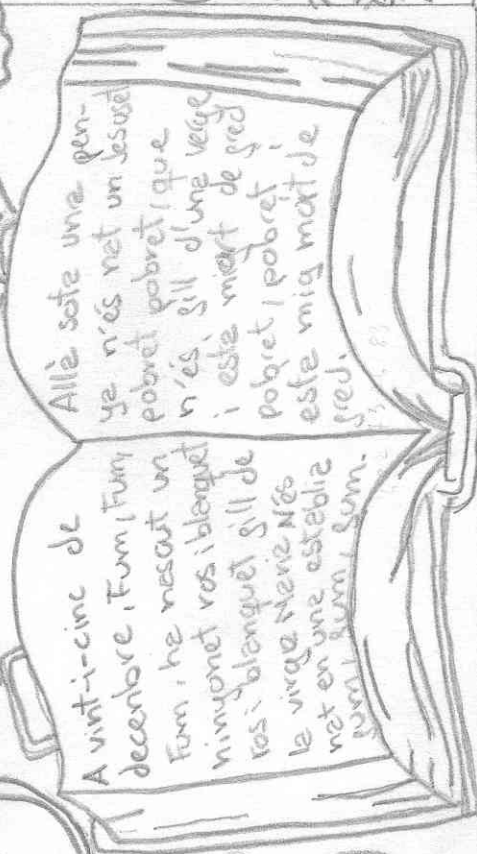 A vint-i-cinc de
decenbre, Fum, Fum,
Fum, ha nascut un
ninyonet ros i blanquet
ros i blanquet fill de
la virge Maria N'és
nat en una establia
fum, fum, fum.
Allà sota una pen-
ya n'és nat un Jesuset
pobret pobret, que
n'és, fill d'una verge
i esta de fred
pobret, pobret i
esta mig mort de
fred.